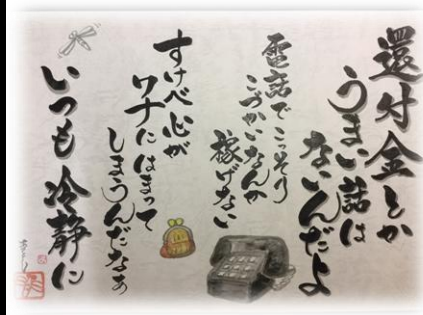 還付金とか
うまい話は
ないんだよ
電話でこっそり
こづかいなんか
稼げない
すけべ心が
ワナにはまって
しまうんだなぁ
いつも冷静に